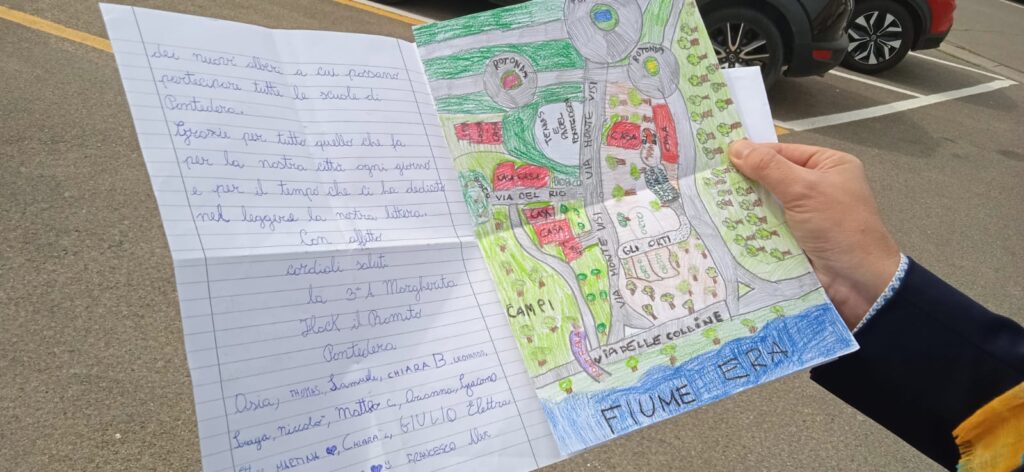 dei nuovi alberi a cui possano
partecipare tutte le scuole di
Pontedera.
Grazie per tutto quello che fa
per la nostra città ogni giorno
e per il tempo che ci ha dedicato
nel leggere la nostra lettera.
Con affetto
cordiali saluti
la 3ª A Margherita
Hack il Romito
Pontedera
Asia, THOMAS, Samuele, CHIARA B. LEONARDO,
Niccolò, Matteo C, Arianna, Giacomo
MARTINA, CHIARA L, GIULIO Elettra
FRANCESCO
ROTONDA
ROTONDA
TENNIS
E
PADEL
PONTEDERA
VIA MONTE VISI
CASA CASA
VIA DEL RIO
CASA
CASA
CASA
CASA
CASA
ORTO
GLI ORTI
MONTE VISI
VIA
CAMPI
VIA DELLE COLLINE
FIUME ERA